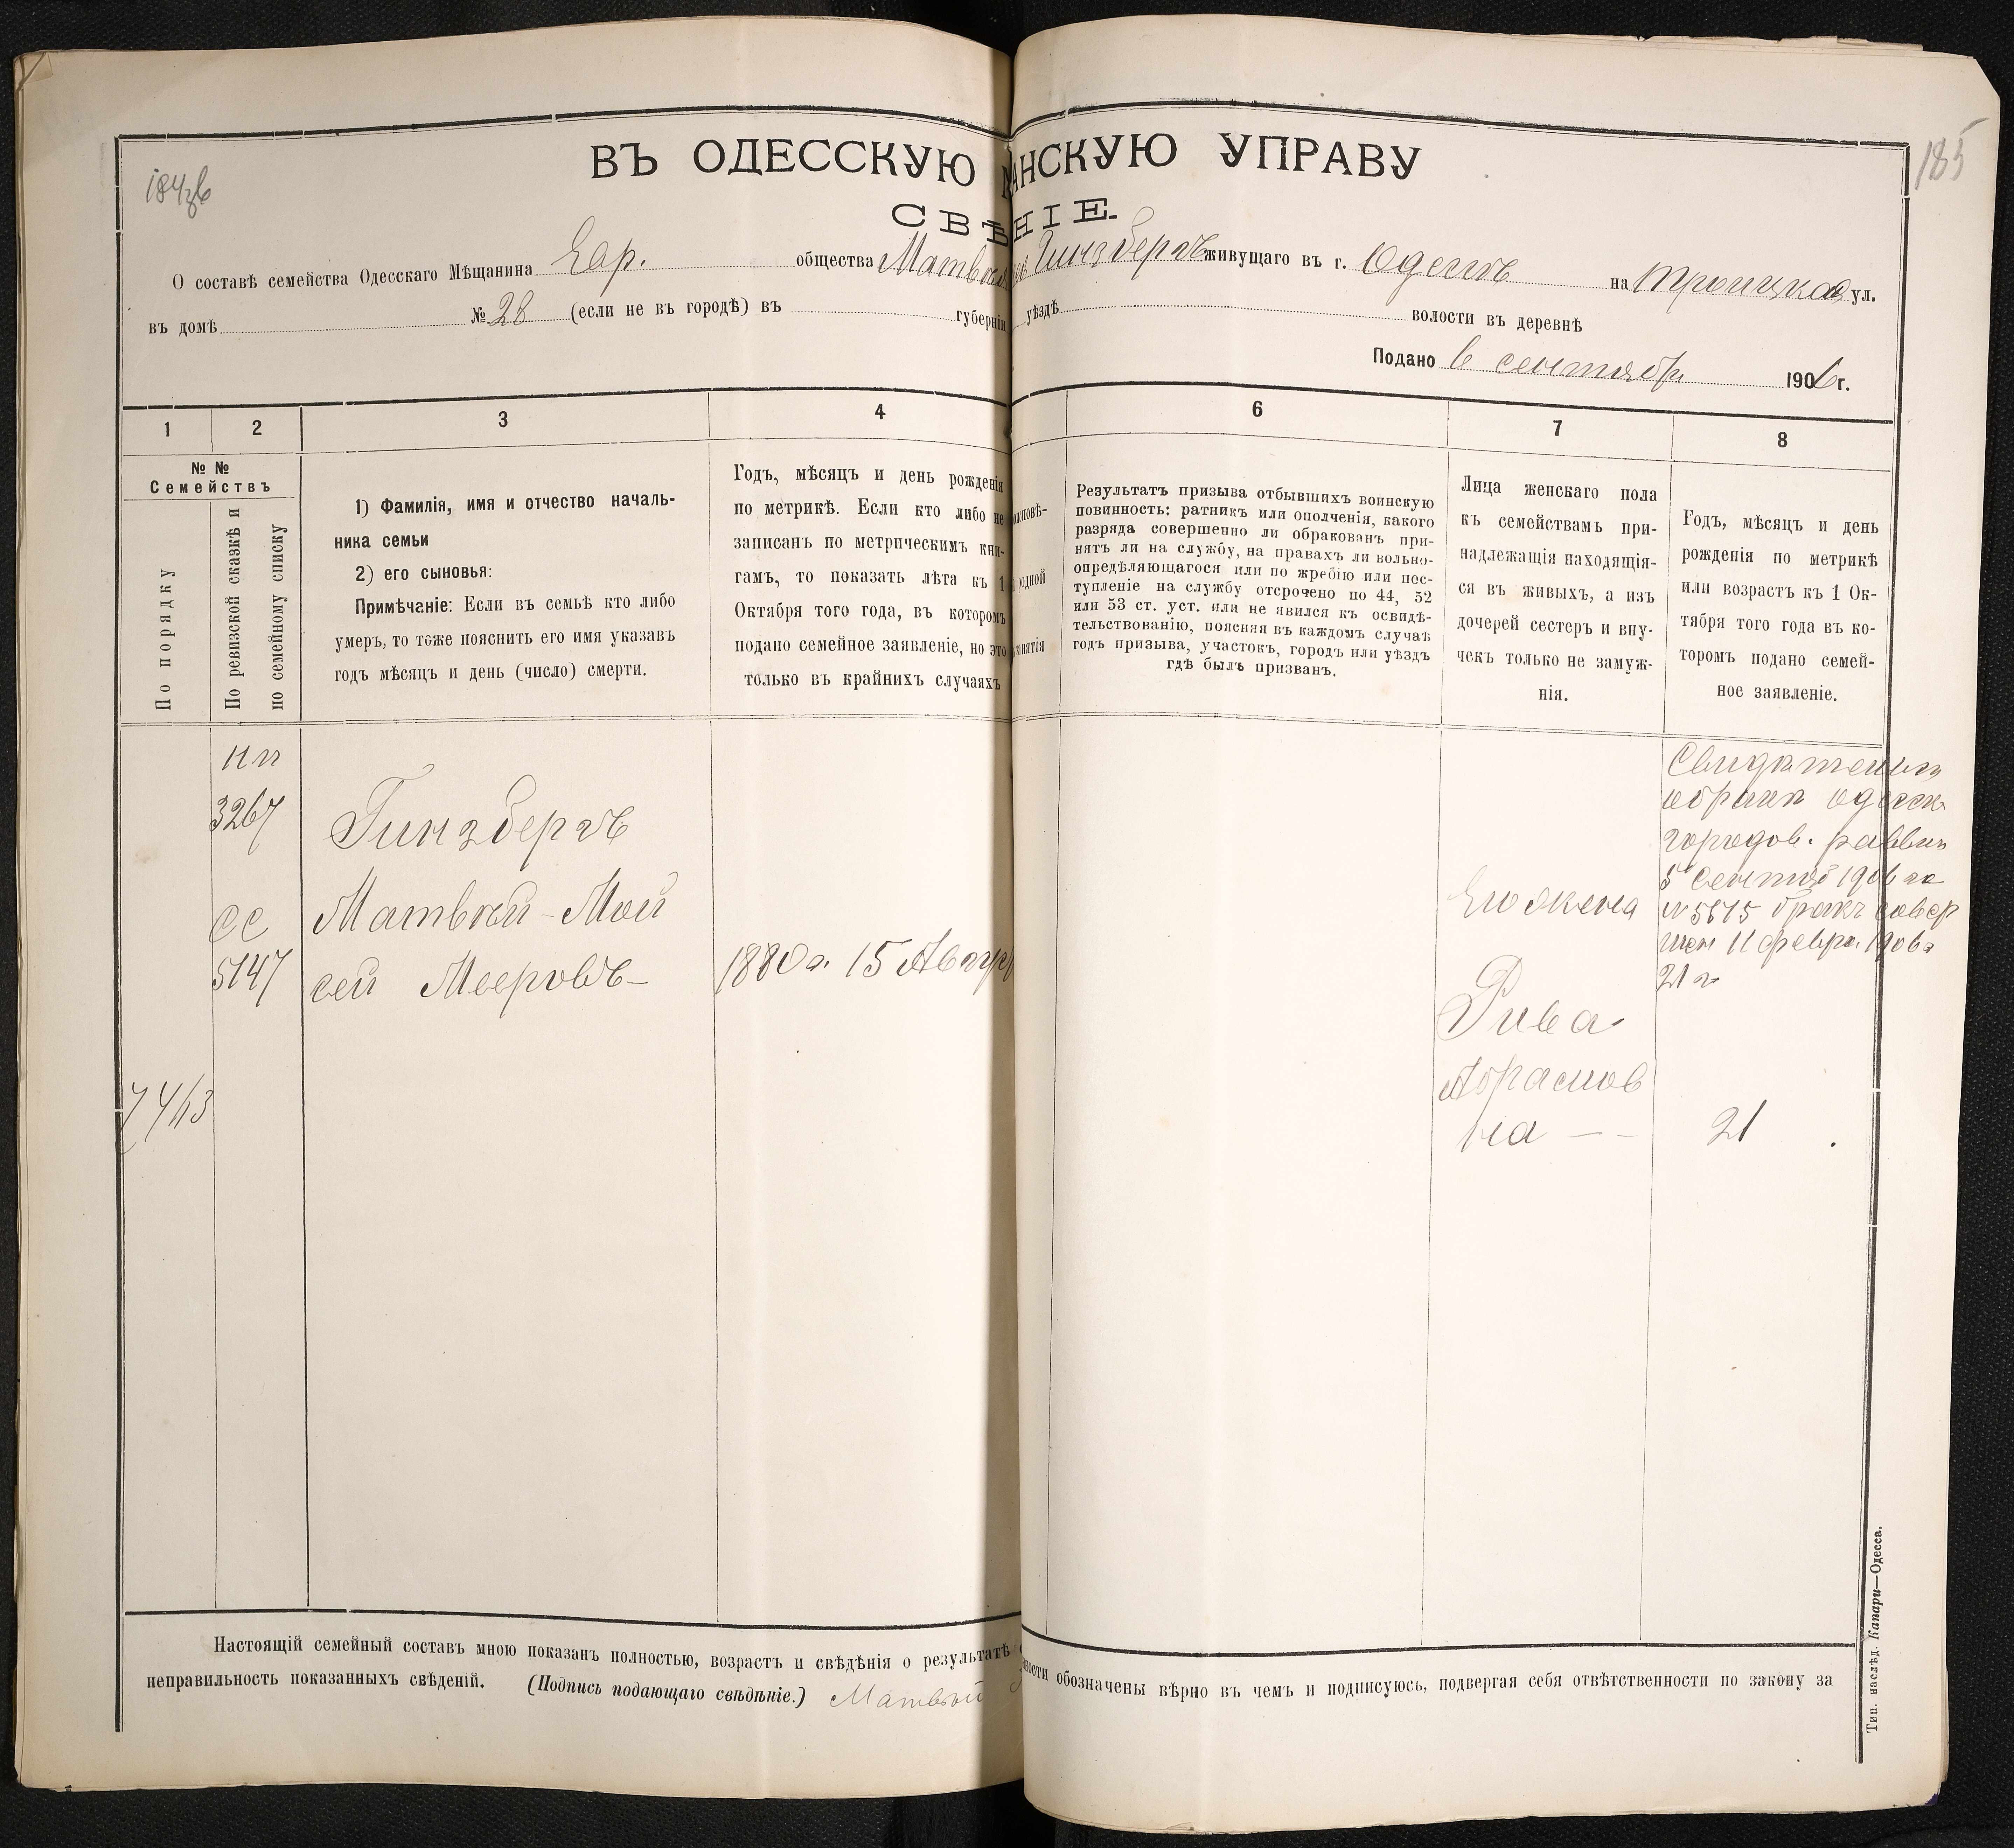 185
184 зв
ВЪ ОДЕССКУЮ МѢЩАНСКУЮ УПРАВУ
СВѢДѢНІЕ.
О составѣ семейства Одесскаго Мѣщанина Евр. общества Матвѣя Гинзбергъ живущаго въ г. Одессѣ на Троицкая ул.
въ домѣ № 28 (если не въ городѣ) въ губерніи уѣздѣ волости въ деревнѣ
Подано 6 сентябр. 1906 г.
1 2 3 4 6 7 8
№ №
Семействъ
По порядку
По ревизской сказкѣ и
по семейному списку
1) Фамилія, имя и отчество началь-
ника семьи
2) его сыновья:
Примѣчаніе: Если въ семьѣ кто либо
умеръ, то тоже пояснить его имя указавъ
годъ мѣсяцъ и день (число) смерти.
Годъ, мѣсяцъ и день рожденія
по метрикѣ. Если кто либо не
записанъ по метрическимъ кни-
гамъ, то показать лѣта къ 1
Октября того года, въ которомъ
подано семейное заявленіе, но это
только въ крайнихъ случаяхъ
родной
Результатъ призыва отбывшихъ воинскую
повинность: ратникъ или ополченія, какого
разряда совершенно ли обракованъ при-
нятъ ли на службу, на правахъ ли вольно-
опредѣляющагося или по жребію или пос-
тупленіе на службу отсрочено по 44, 52
или 53 ст. уст. или не явился къ освидѣ-
тельствованію, поясняя въ каждомъ случаѣ
годъ призыва, участокъ, городъ или уѣздъ
гдѣ былъ призванъ.
Лица женскаго пола
къ семействамъ при-
надлежащія находящія-
ся въ живыхъ, а изъ
дочерей сестеръ и вну-
чекъ только не замуж-
нія.
Годъ, мѣсяцъ и день
рожденія по метрикѣ
или возрастъ къ 1 Ок-
тября того года въ ко-
торомъ подано семей-
ное заявленіе.
нп
3267
Гинзбергъ
СС
5147
Матвѣй-Мой
сей Мееровъ-
1880 г. 15 Август
7413
Его жена
Рива
Абрамов
на — —
одесск
городов. раввин
5 Сентяб 1906 г
№ 5675 бракъ совер
шен 11 февр. 1906 г
21 г
21
Настоящій семейный составъ мною показанъ полностью, возрастъ и свѣдѣнія о результатѣ обозначены вѣрно въ чемъ и подписуюсь, подвергая себя отвѣтственности по закону за
неправильность показанныхъ свѣденій. (Подпись подающаго свѣдѣніе.) Матвѣй
Тип. наслѣд. Капари—Одесса.